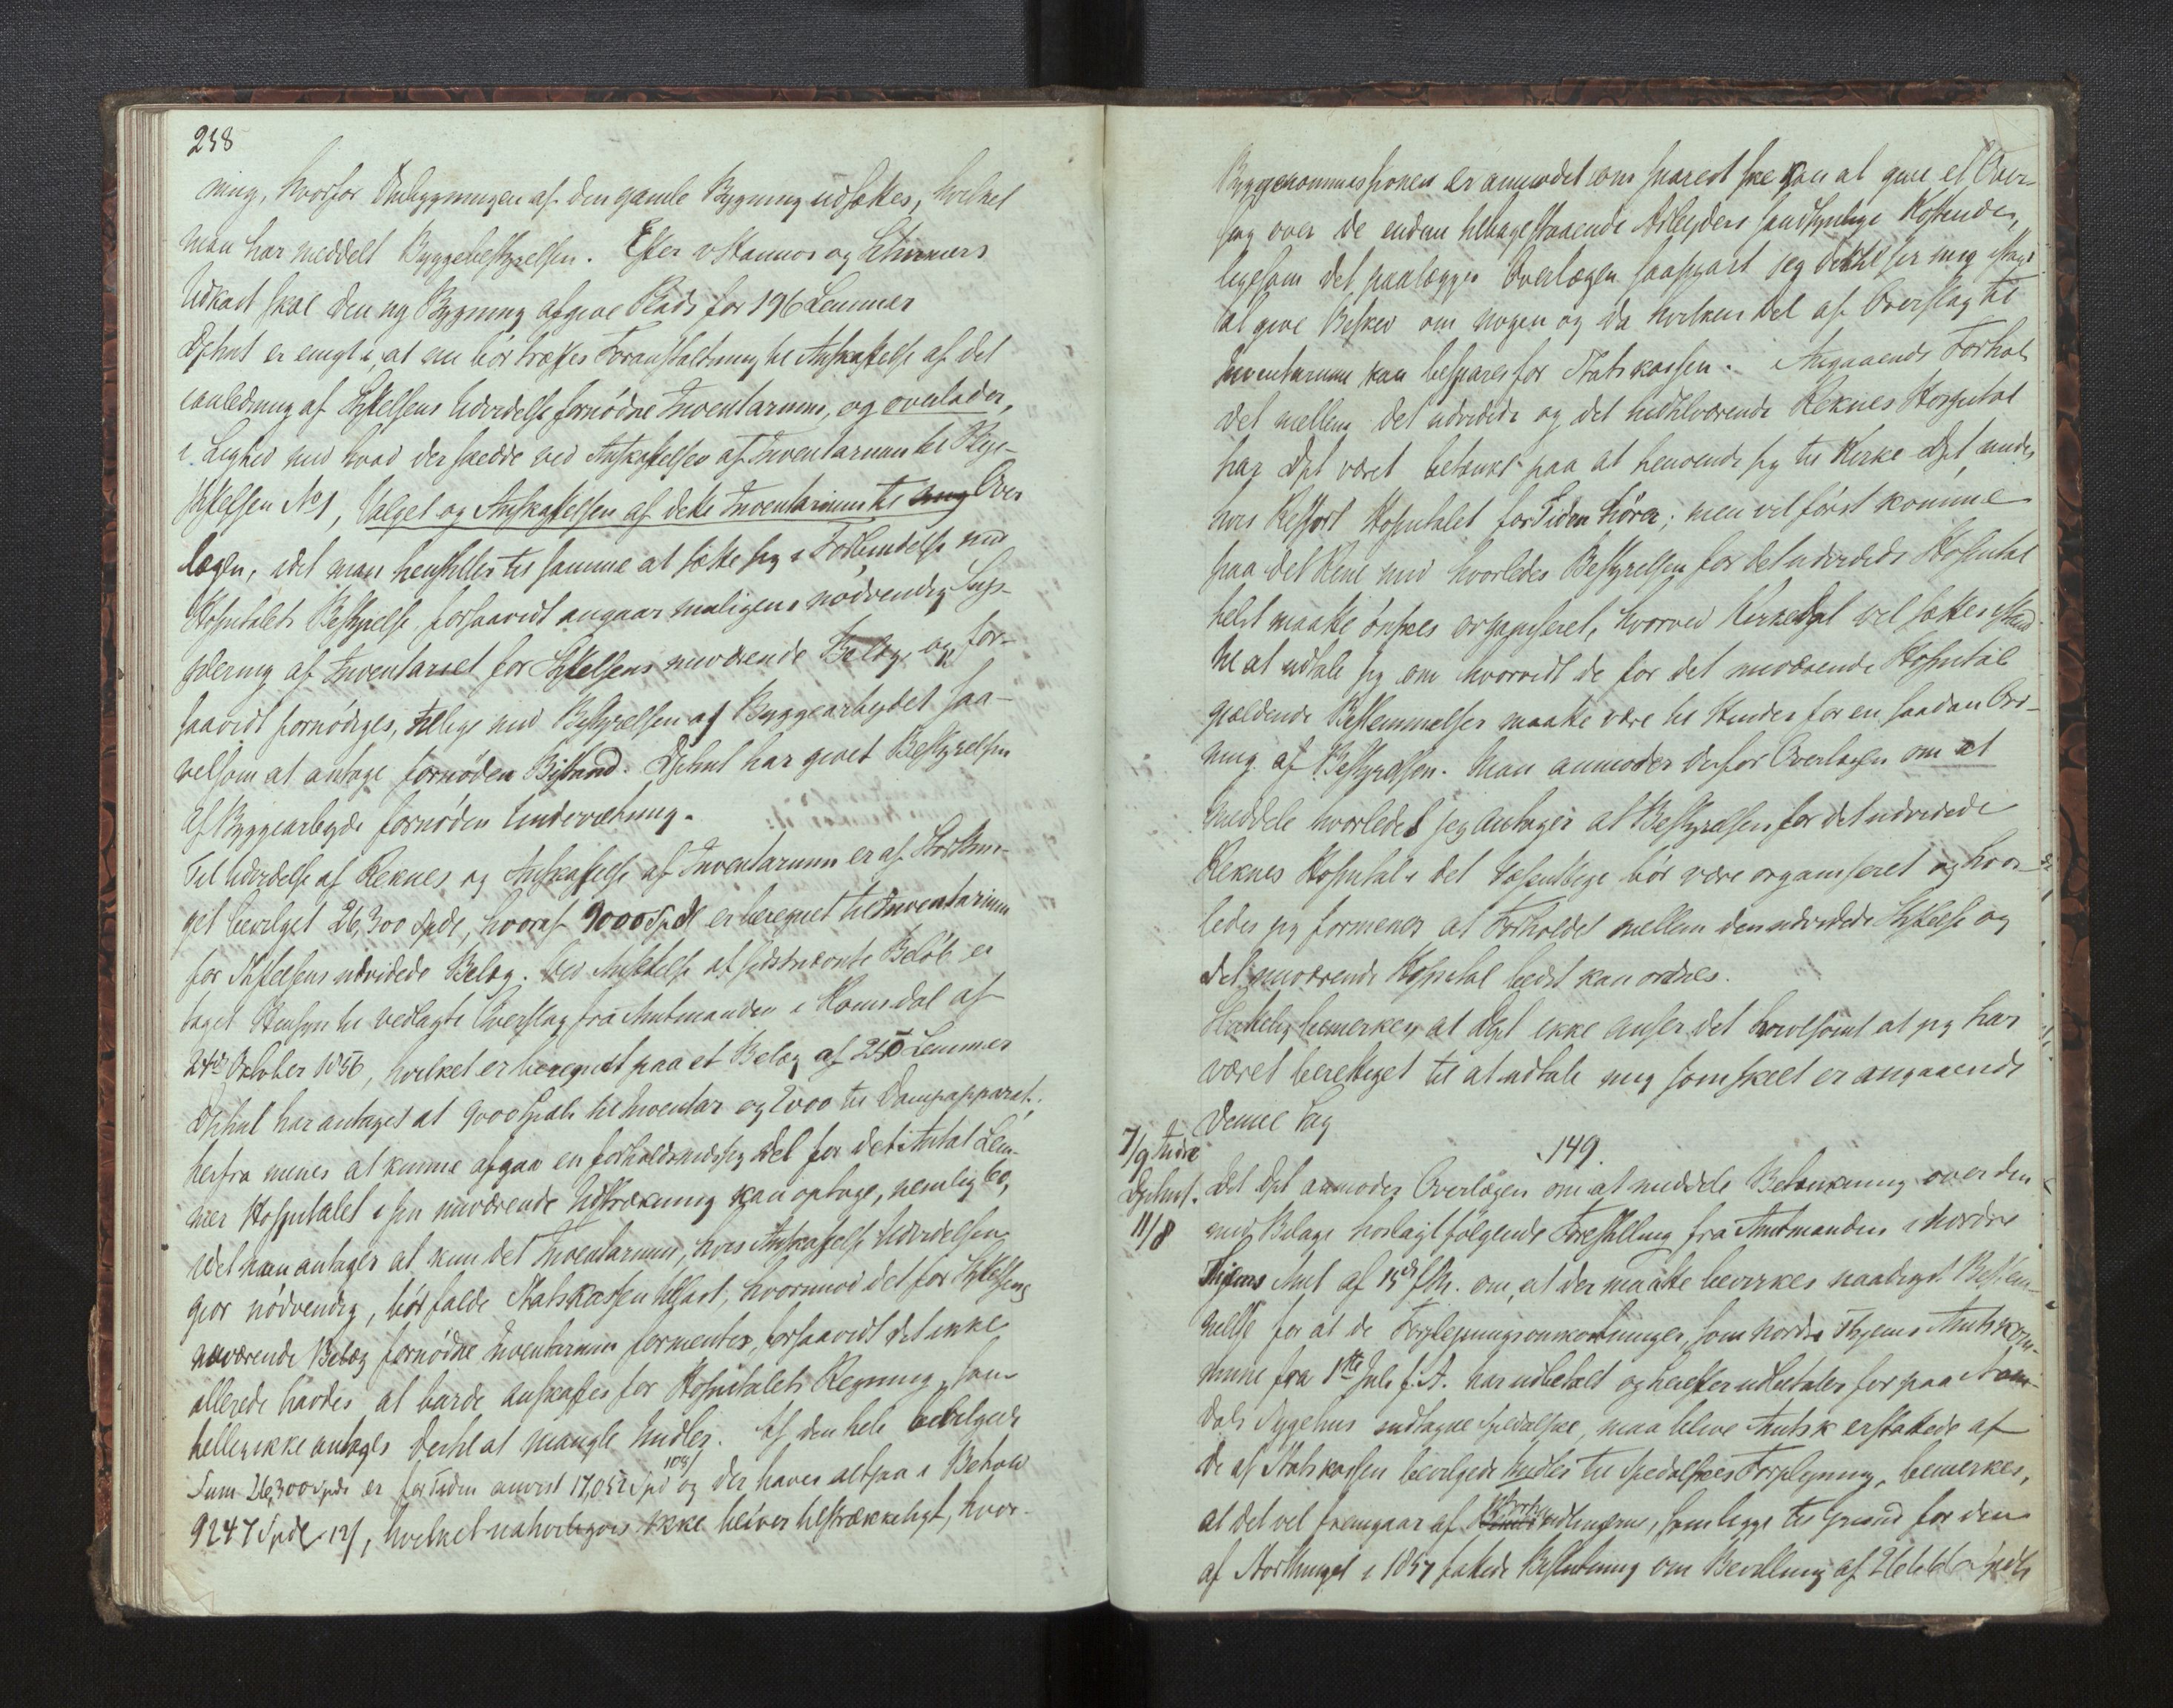 238
ning, hvorfor Ombygningen af den gamle Bygning udsættes, hvilket
man har meddelt Byggebestyrelsen. Efter v Hannos og Schirmers
Udkast skal den ny Bygning afgive Plads for 196 Lemmer
Dpthmt er enigt i, at nu bør træffes Foranstaltning til Anskaffelse af det
ianledning af Stiftelsens Udvidelse fornødne Inventarium, og overlader,
i Lighed med hvad der skeede ved Anskaffelsen af Inventarium til Pleje-
stiftelsen No 1, Valget og Anskaffelsen af dette Inventarium til Over
lægen, idet man henstiller til samme at sætte sig i Forbindelse med
Hospitalets Bestyrelse, forsaavidt angaar muligens nødvendig Sup-
plering af Inventariet for Stiftelsens nuværende Belæg, og for-
saavidt fornødiges, tillige med Bestyrelsen af Byggearbeydet saa-
velsom at antage fornøden Bistand. Dpthmt har givet Bestyrelsen
af Byggearbeyde fornøden Underretning.
Til Udvidelse af Reknes og Anskaffelse af Inventarium er af Storthin-
get bevilget 26,300 Spdl, hvoraf 9000 Spdl er beregnet til Inventarium
for Stiftelsens udvidede Belæg. Ved Ansættelse af sidstnævnte Beløb er
taget Hensyn til vedlagte Overslag fra Amtmanden i Romsdal af
24de Oktober 1856, hvilket er beregnet paa et Belæg af 250 Lemmer
Dpthmt har antaget at 9000 Spdl til Inventar og 2000 til Dampapparat;
herfra menes at kunne afgaa en forholdsmæssig Del for det Antal Lem-
mer Hospitalet i sin nuværende Udstrækning kan optage, nemlig 60,
idet man antager at kun det Inventarium, hvis Anskaffelse Udvidelsen
gjør nødvendig, bør falde Statskassen tillast, hvorimod det for Stiftelsens
nuværende Belæg fornødne Inventarium formentes, forsaavidt det ikke
allerede havdes at burde anskaffes for Hospitalets Regning, som
heller ikke antages dertil at mangle Midler. Af den hele bevilgede
Sum 26,300 Spdl er for Tiden anvist 17,052 Spd 108 / og der haves altsaa i Behold
9247 Spdl 12 /, hvilket naturligvis ikke bliver tilstrækkeligt, hvor-
Byggekommissionen er anmodet om snarest skee kan at give et Over-
slag over de endnu tilbagestaaende Arbeyders sandsynlige Kostende,
ligesom det paalægges Overlægen saasnart jeg dertil ser mig istand
at give Besked om nogen og da hvilken Del af Overslag til
Inventarium kan bespares for Statskassen. Angaaende Forhol
det mellem det udvidede og det hidtilværende Reknes Hospital
har Dpt været betænkt paa at henvende sig til Kirke Dpt, under
hvis Ressort Hospitalet for Tiden hører; men vil først komme
paa det Rene med hvorledes Bestyrelsen for det udvidede Hospital
helst maatte ønskes organiseret, hvorved Kirkedpt vil sættes istand
til at udtale sig om hvorvidt de for det nuværende Hospital
gjældende Bestemmelser maatte være til Hinder for en saadan Ord-
ning af Bestyrelsen. Man anmoder derfor Overlægen om at
meddele hvorledes jeg antager at Bestyrelsen for det udvidede
Reknes Hospital i det Væsentlige bør være organiseret og hvor-
ledes jeg formener at Forholdet mellem den udvidede Stiftelse og
det nuværende Hospital bedst kan ordnes.
bemerkes, at Dpt ikke anser det tvivlsomt at jeg har
været berettiget til at udtale mig som skeet er angaaende
denne Sag
149.
7/9 Indre
Dpthmt. Det Dpt anmoder Overlægen om at meddele Betænkning over den
11/8 med Bilage hoslagt følgende Forestilling fra Amtmanden i Nordre
Thjems Amt af 15de f.M. om, at der maatte bevirkes naadigst Bestem-
melse for at de Forplejningsomkostninger, som Nordre Thjems Amtskom-
mune fra 1ste Juli f.A. har udbetalt og herefter udbetaler for paa Nam-
dals Sygehus indlagne Spedalske, maa blive Amtsk erstattede af
de af Statskassen bevilgede Midler til Spedalskes Forplejning, bemerkes,
at det vel fremgaar af Forhandlingerne, som ligge til Grund for den
af Storthinget i 1857 fattede Beslutning om Bevilling af 26666 Spdl